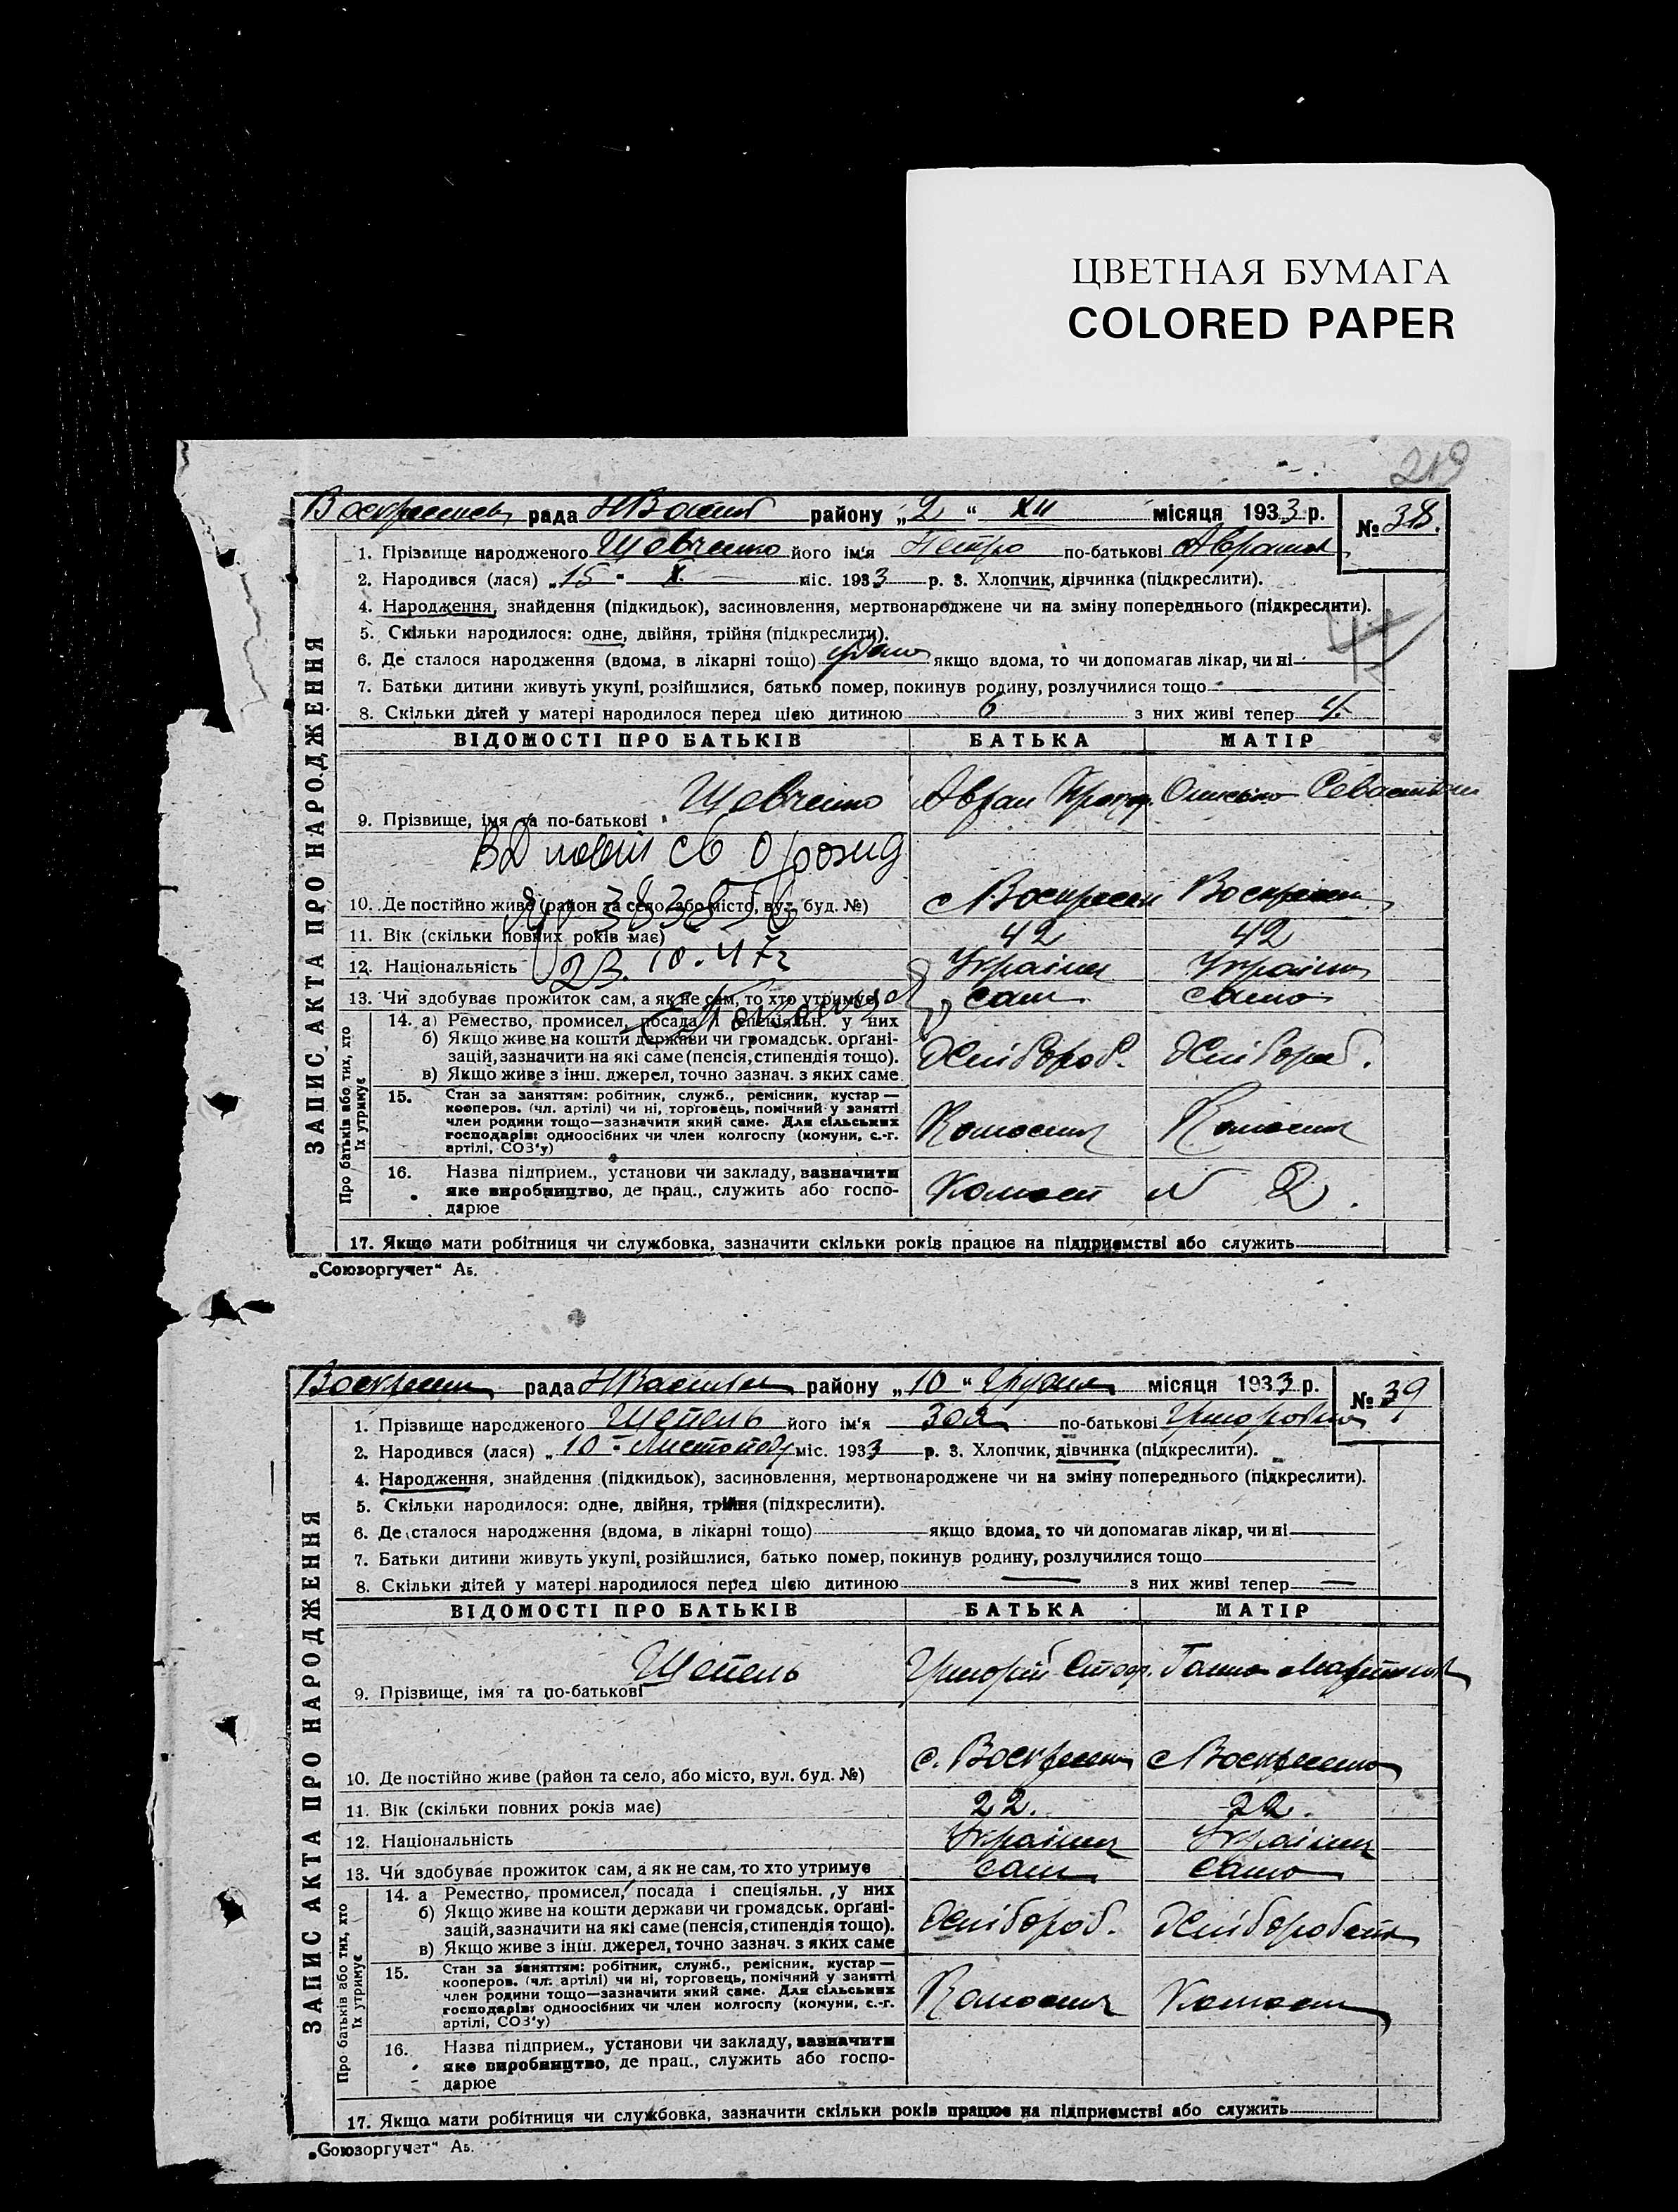 ЦВЕТНАЯ БУМАГА
COLORED PAPER
219
рада району „2“ XII місяця 1933 р.
№ 38.
1. Прізвище народженого Шевченко його ім'я Петро по-батькові
2. Народився (лася) „15“ X. міс. 1933 р. 3. Хлопчик, дівчинка (підкреслити).
4. Народження, знайдення (підкидьок), засиновлення, мертвонароджене чи на зміну попереднього (підкреслити).
5. Скільки народилося: одне, двійня, трійня (підкреслити).
6. Де сталося народження (вдома, в лікарні тощо) якщо вдома, то чи допомагав лікар, чи ні
7. Батьки дитини живуть укупі, розійшлися, батько помер, покинув родину, розлучилися тощо
8. Скільки дітей у матері народилося перед цією дитиною 6 з них живі тепер 4.
ЗАПИС АКТА ПРО НАРОДЖЕННЯ
ВІДОМОСТІ ПРО БАТЬКІВ БАТЬКА МАТІР
9. Прізвище, імя та по-батькові Шевченко
10. Де постійно живе (район та село, або місто, вул. буд. №)
11. Вік (скільки повних років має) 42 42
12. Національність
23.10.47г
13. Чи здобуває прожиток сам, а як не сам, то хто утримує сам само
Про батьків або тих, хто їх утримує
14. а) Ремество, промисел, посада і спеціяльн. у них
б) Якщо живе на кошти держави чи громадськ. орґані-
зацій, зазначити на які саме (пенсія, стипендія тощо).
в) Якщо живе з інш. джерел, точно зазнач. з яких саме
Хлібороб. Хлібороб.
15. Стан за заняттям: робітник, служб., ремісник, кустар—
кооперов. (чл. артілі) чи ні, торговець, помічний у занятті
член родини тощо—зазначити який саме. Для сільських
господарів: одноосібних чи член колгоспу (комуни, с.-г.
артілі, СОЗ'у)
16. Назва підприєм., установи чи закладу, зазначити
яке виробництво, де прац., служить або госпо-
дарює
№ 2.
17. Якщо мати робітниця чи службовка, зазначити скільки років працює на підприємстві або служить
„Союзоргучет“ Аь.
рада району „10“ Грудня місяця 1933 р.
№ 39
1. Прізвище народженого Шепель його ім'я Зоя по-батькові
2. Народився (лася) „10“ Листопад міс. 1933 р. 3. Хлопчик, дівчинка (підкреслити).
4. Народження, знайдення (підкидьок), засиновлення, мертвонароджене чи на зміну попереднього (підкреслити).
5. Скільки народилося: одне, двійня, трійня (підкреслити).
6. Де сталося народження (вдома, в лікарні тощо) якщо вдома, то чи допомагав лікар, чи ні
7. Батьки дитини живуть укупі, розійшлися, батько помер, покинув родину, розлучилися тощо
8. Скільки дітей у матері народилося перед цією дитиною — з них живі тепер —
ЗАПИС АКТА ПРО НАРОДЖЕННЯ
ВІДОМОСТІ ПРО БАТЬКІВ БАТЬКА МАТІР
9. Прізвище, імя та по-батькові Шепель Григорій Ганна
10. Де постійно живе (район та село, або місто, вул. буд. №)
11. Вік (скільки повних років має) 22. 22.
12. Національність
13. Чи здобуває прожиток сам, а як не сам, то хто утримує сам само
Про батьків або тих, хто їх утримує
14. а Ремество, промисел, посада і спеціяльн., у них
б) Якщо живе на кошти держави чи громадськ. орґані-
зацій, зазначити на які саме (пенсія, стипендія тощо).
в) Якщо живе з інш. джерел, точно зазнач. з яких саме
Хлібороб.
15. Стан за заняттям: робітник, служб., ремісник, кустар—
кооперов. (чл. артілі) чи ні, торговець, помічний у занятті
член родини тощо—зазначити який саме. Для сільських
господарів: одноосібних чи член колгоспу (комуни, с.-г.
артілі, СОЗ'у)
16. Назва підприєм., установи чи закладу, зазначити
яке виробництво, де прац., служить або госпо-
дарює
17. Якщо мати робітниця чи службовка, зазначити скільки років працює на підприємстві або служить
„Союзоргучет“ Аь.